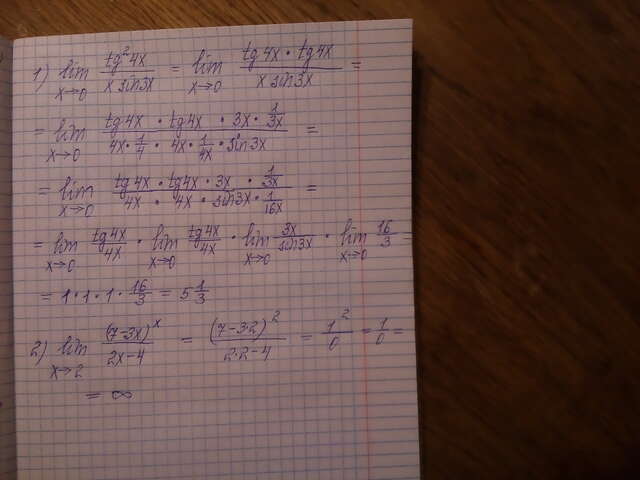 1) lim x→0 tg²4x / x sin3x = lim x→0 tg4x · tg4x / x sin3x =
= lim x→0 tg4x · tg4x · 3x · 1/3x / 4x · 1/4 · 4x · 1/4x · sin3x =
= lim x→0 tg4x · tg4x · 3x · 1/3x / 4x · 4x · sin3x · 1/16x =
= lim x→0 tg4x / 4x · lim x→0 tg4x / 4x · lim x→0 3x / sin3x · lim x→0 16/3 =
= 1 · 1 · 1 · 16/3 = 5 1/3
2) lim x→2 (7-3x)^x / 2x-4 = (7-3·2)² / 2·2-4 = 1²/0 = 1/0 =
= ∞